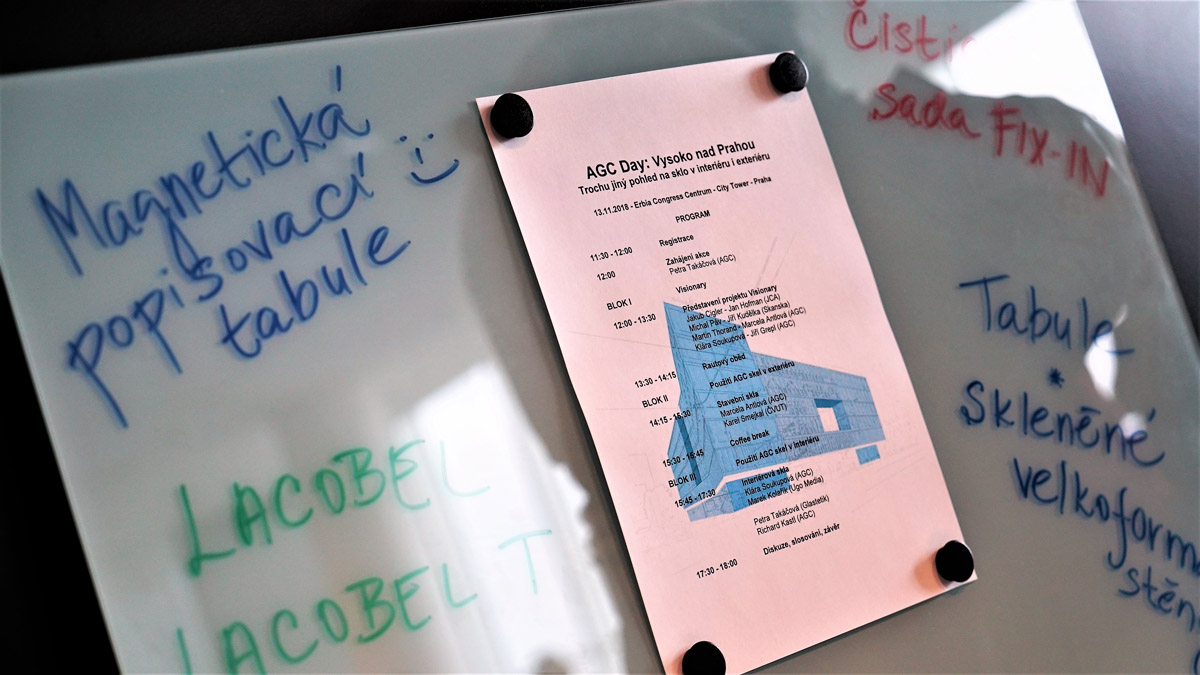 Magnetická
popisovací :)
tabule
LACOBEL
LACOBEL T
AGC Day: Vysoko nad Prahou
Trochu jiný pohled na sklo v interiéru i exteriéru
13.11.2018 - Erbia Congress Centrum - City Tower - Praha
PROGRAM
11:30 - 12:00 Registrace
12:00 Zahájení akce
Petra Takáčová (AGC)
BLOK I Visionary
12:00 - 13:30 Představení projektu Visionary
Jakub Cigler - Jan Hofman (JCA)
Michal Páv - Jiří Kudělka (Skanska)
Martin Thorand - Marcela Antlová (AGC)
Klára Soukupová - Jiří Grepl (AGC)
13:30 - 14:15 Rautový oběd
BLOK II Použití AGC skel v exteriéru
14:15 - 15:30 Stavební skla
Marcela Antlová (AGC)
Karel Smejkal (ČVUT)
15:30 - 15:45 Coffee break
BLOK III Použití AGC skel v interiéru
15:45 - 17:30 Interiérová skla
Klára Soukupová (AGC)
Marek Kolařík (Ugo Media)
Petra Takáčová (Glastetik)
Richard Kastl (AGC)
17:30 - 18:00 Diskuze, slosování, závěr
Čisti
sada FIX-IN
Tabule
*
Skleněné
velkoform
stěn